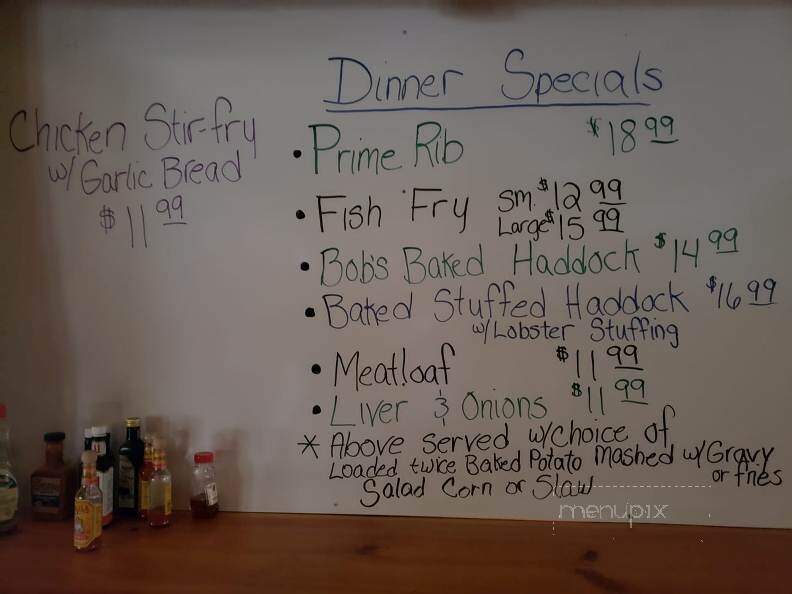 Chicken Stir-fry
w/ Garlic Bread
$11 99
Dinner Specials
• Prime Rib $18 99
• Fish Fry Sm. $12 99
Large $15 99
• Bob's Baked Haddock $14 99
• Baked Stuffed Haddock $16 99
w/Lobster Stuffing
• Meatloaf $11 99
• Liver & Onions $11 99
* Above served w/choice of
Loaded twice Baked Potato Mashed w/Gravy
or fries
Salad Corn or Slaw
menupix